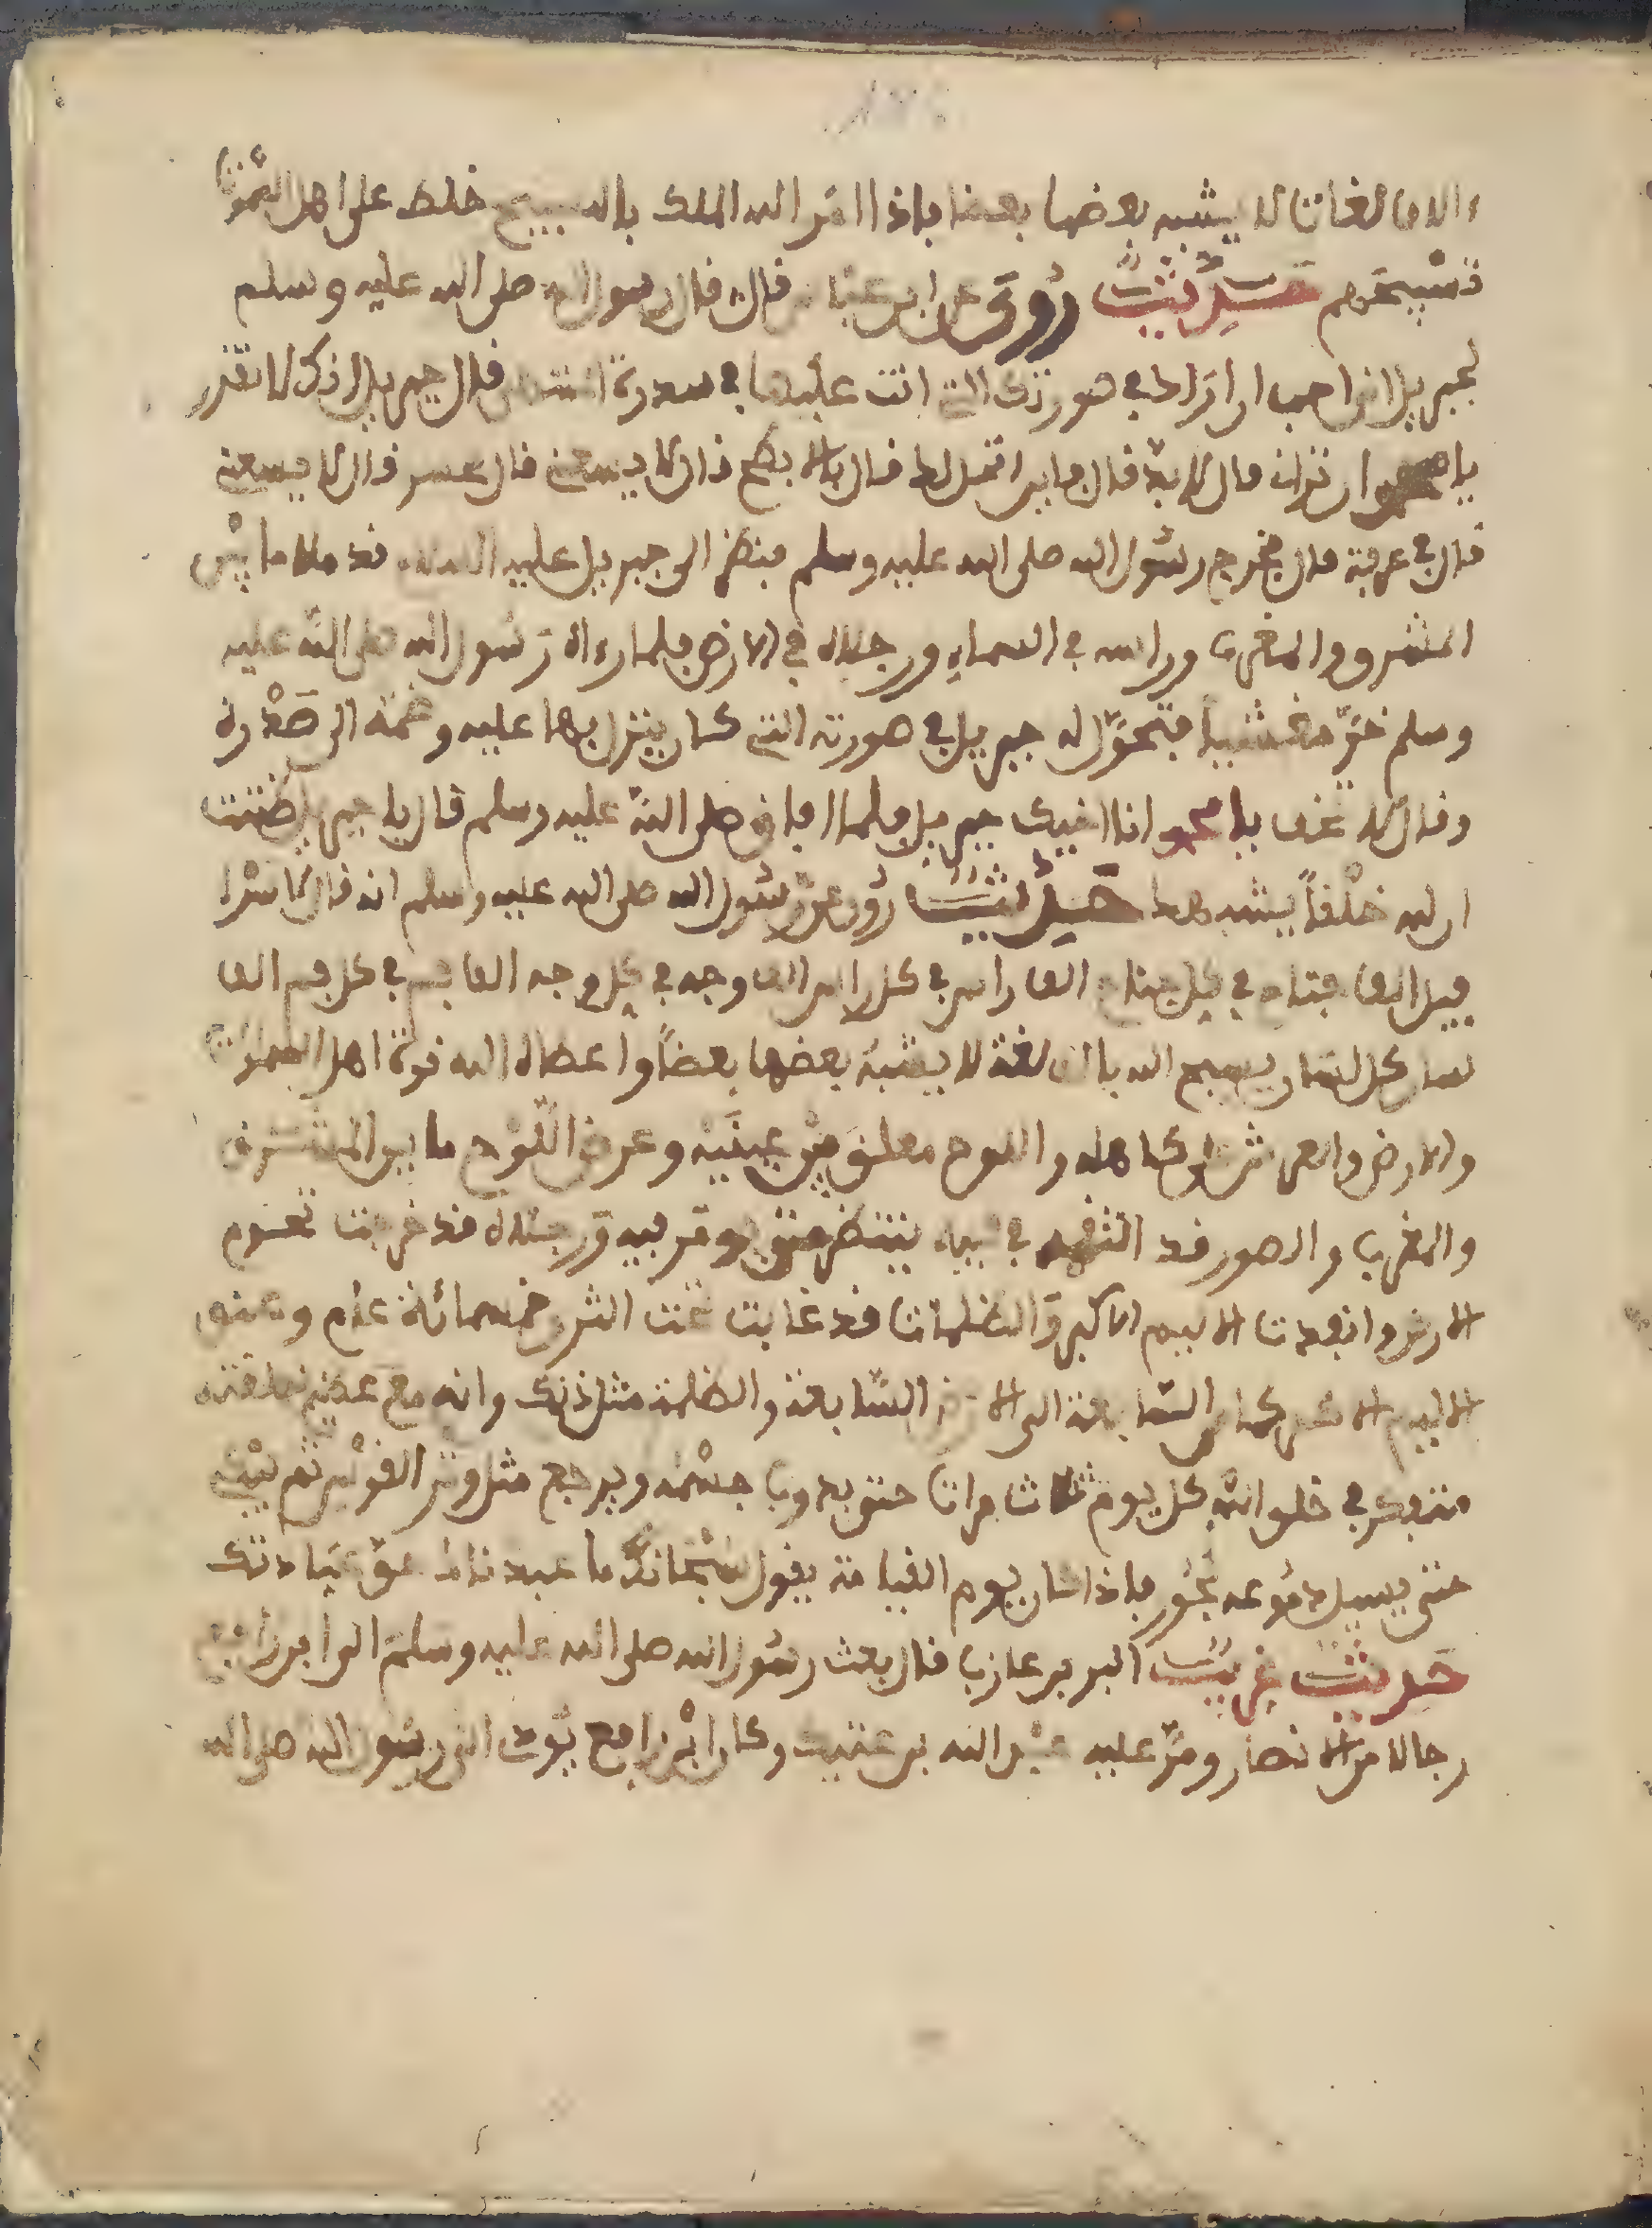 ءالاف لغات لا يشبه بعضها بعضا فاذا امر الله الملك بالتسبيح خلط على اهل السموات
تسبيحهم حديث روى عن ابن عباس قال قال رسول الله صلى الله عليه وسلم
لجبريل اني احب ان اراك في صورتك التي انت عليها في سدرة المنتهى فقال جبريل انك لا تقدر
يا محمد ان تراني قال لا بد قال فاين اتمثل لك قال بالابطح قال لا يسعني قال لا يسعني
قال في عرفة قال فخرج رسول الله صلى الله عليه وسلم فنظر الى جبريل عليه السلام قد ملا ما بين
المشرق والمغرب وراسه في السماء ورجلاه في الارض فلما رءاه رسول الله صلى الله عليه
وسلم خرّ مغشيا فتحوّل له جبريل في صورته التي كان ينزل بها عليه وضمه الى صدره
وقال لا تخف يا محمد انا اخيك جبريل فلما افاق صلى الله عليه وسلم قال يا جبريل ظننت
ان لله خلقاً يشبه هذا حديث روى عن رسول الله صلى الله عليه وسلم انه قال
الف جناح في كل جناح الف راس في كل راس الف وجه في كل وجه الف فم في كل فم الف
لسان كل لسان يسبح الله بالف لغة لا يشبه بعضها بعضاً واعطاه الله قوة اهل السموات
والارض والعرش على كاهله واللوح معلق بين عينيه وعرض اللوح ما بين المشرق
والمغرب والصور قد التقمه في فيه ينتظر متى يومر فيه ورجلاه قد خرقت تخوم
الارض وانفدت اليم الاكبر والظلمات قد غابت تحت الثرى خمسمائة عام
السابعة الى السابعة والظلمة مثل ذلك وانه مع عظيم خلقته
متفكر في خلق الله كل يوم ثلاث مرات حتى يدوب جسمه ويرجع مثل وتر القوس ثم يبكي
حتى يسيل دموعه بحور فاذا كان يوم القيامة يقول سبحانك ما عبدناك حق عبادتك
حديث غريب البر بن عازب قال بعث رسول الله صلى الله عليه وسلم الى ابي رافع
رجالا من الانصار ومرّ عليه عبد الله بن عتيك وكان ابي رافع يوذى رسول الله صلى الله